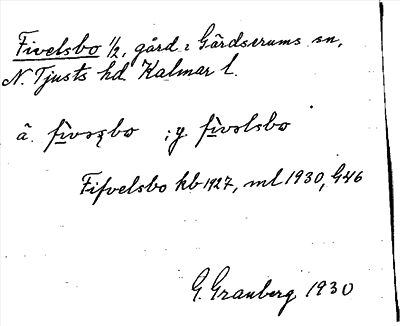 Fivelsbo 1/2, gård i Gårdserums sn,
N. Tjusts hd Kalmar l.
ä. fìvəʂbo ; y. fìvəlsbo
Fifvelsbo kb 1927, ml 1930, G46
G. Granberg 1930